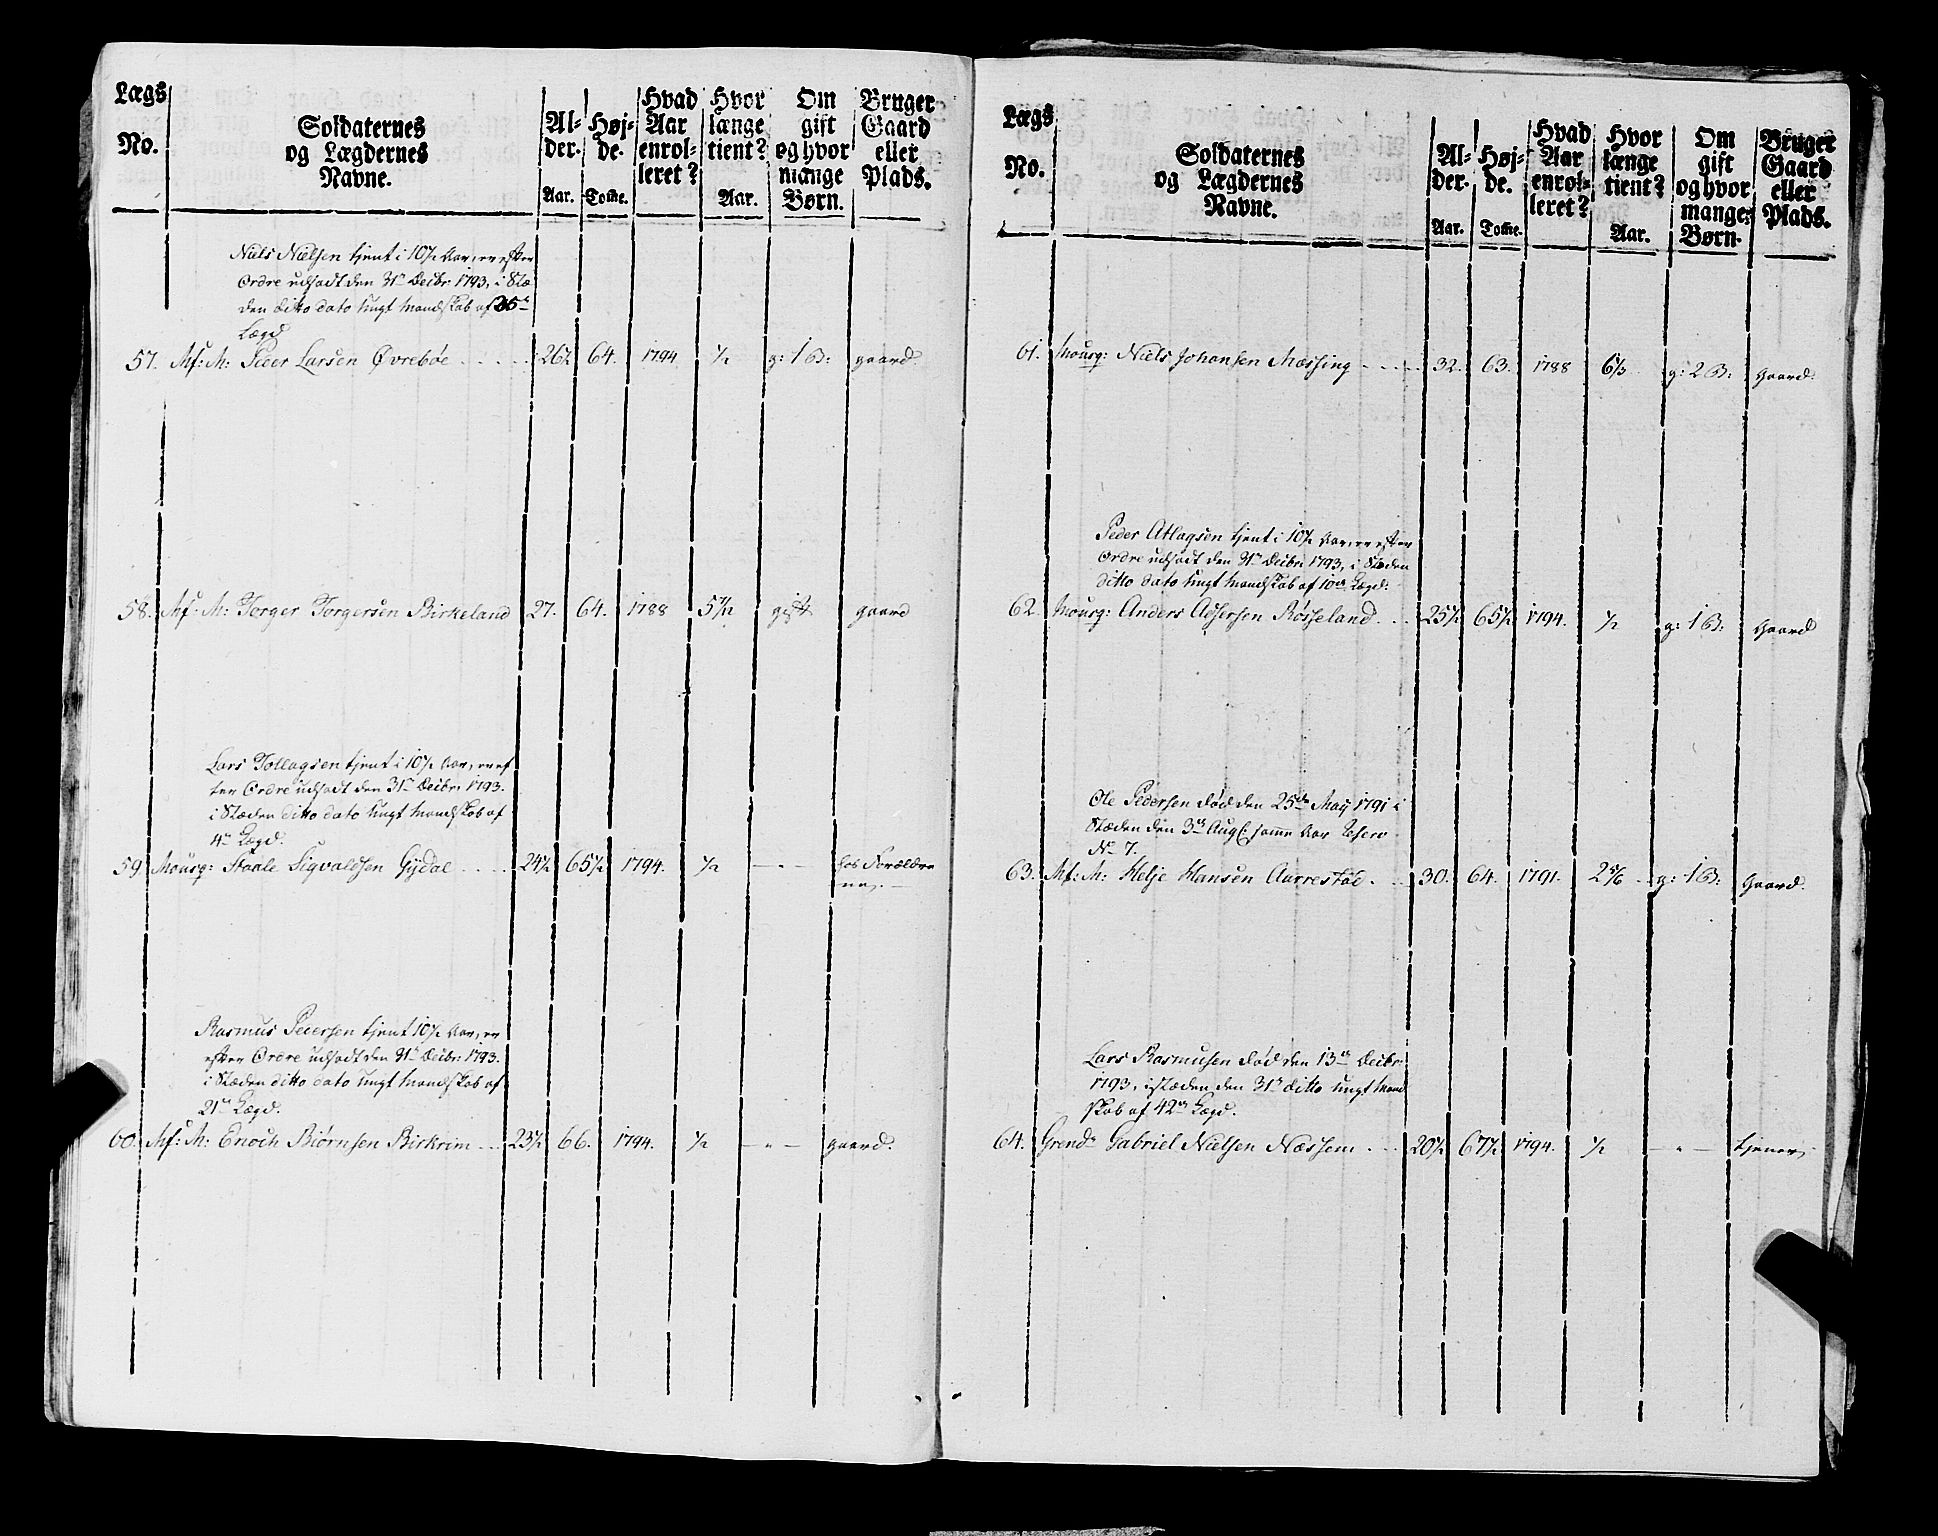 Lægs
No.
Soldaternes
og Lægdernes
Navne.
Al-
der.
Aar.
Høj-
de.
Tome.
Hvad
Aar
enrol-
leret?
Hvor
længe
tient?
Aar.
Om
gift
og hvor
mange
Børn.
Bruger
Gaard
eller
Plads.
Niels Nielsen tjent i 10½ Aar, er efter
Ordre udsadt den 31te Decbr. 1793, i Stæ
den ditto dato Ungt Mandskab af
Lægd
57. Peer Larsen Øvrebøe 26½ 64. 1794 ½ g: 1 B: gaard.
58. Torger Torgersen Birkeland 27. 64. 1788 5½ gift gaard
Lars Tollagsen tjent i 10½ Aar, er ef
ter Ordre udsadt den 31te Decbr. 1793.
i Stæden ditto dato Ungt Mandskab af
4de Lægd.
59 Mousq: Staale Sigvaldsen Gydal 24½ 65½ 1794. ½ — " — hos Forældre
ne.
Rasmus Petersen tjent 10½ Aar, er
efter Ordre udsadt den 31te Decbr. 1793.
i Stæden ditto dato Ungt Mandskab af
21de Lægd.
60. Enoch Biørnsen Birkrim 23½ 66. 1794. ½ — " — gaard.
Lægs
No.
Soldaternes
og Lægdernes
Navne.
Al-
der.
Aar.
Høj-
de.
Tome.
Hvad
Aar
enrol-
leret?
Hvor
længe
tient?
Aar.
Om
gift
og hvor
mange
Børn.
Bruger
Gaard
eller
Plads.
61. Mousq: Niels Johansen Mæssing 32. 63. 1788 6⅓ g: 2 B: gaard.
Peder Atlagsen tjent i 10½ Aar, er efter
Ordre udsadt den 31te Decbr. 1793, i Stæden
ditto dato Ungt Mandskab af 10de Lægd.
62. Mousq: Anders Adsersen Røsseland. 25½ 65½ 1794. ½ g: 1 B: Gaard
Ole Pedersen død den 25de May 1791 i
Stæden den 3de Aug. samme Aar Reserv
No 7.
63. Helje Hansen Aarrestad. 30. 64. 1791. g: 1 B: Gaard.
Lars Rasmusen død den 13de Decbr.
1793, i stæden den 31te ditto Ungt Mand
skab af 42de Lægd.
64. Grend: Gabriel Nielsen Næssem 20½ 67½ 1794. ½ — " — tjener.